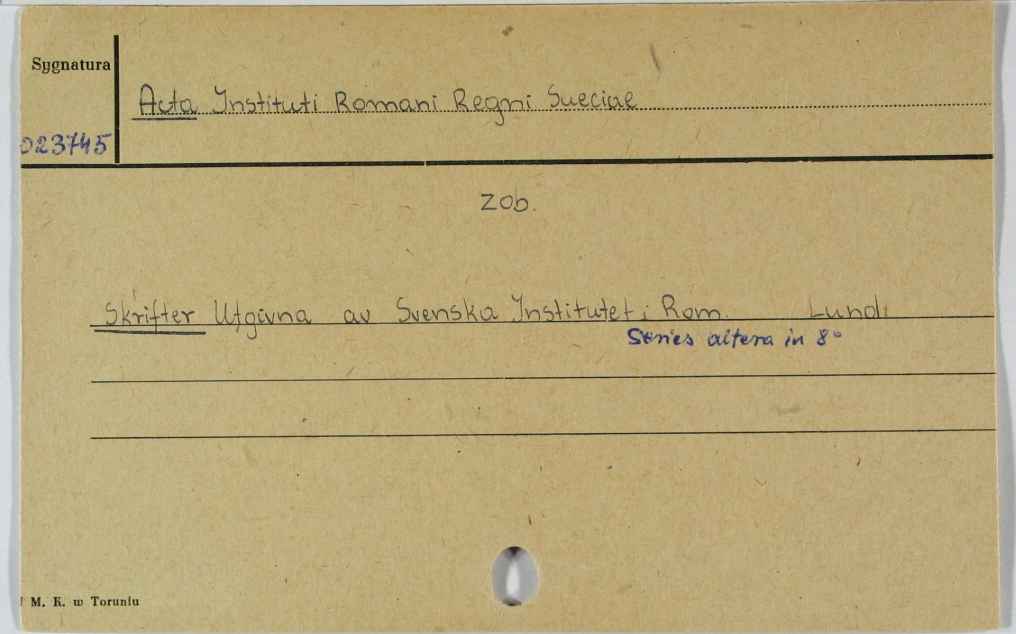 Sygnatura
Acta Instituti Romani Regni Sueciae
023745
zob.
Skrifter Utgivna av Svenska Institutet i Rom. Lund
Series altera in 8°
M. K. w Toruniu